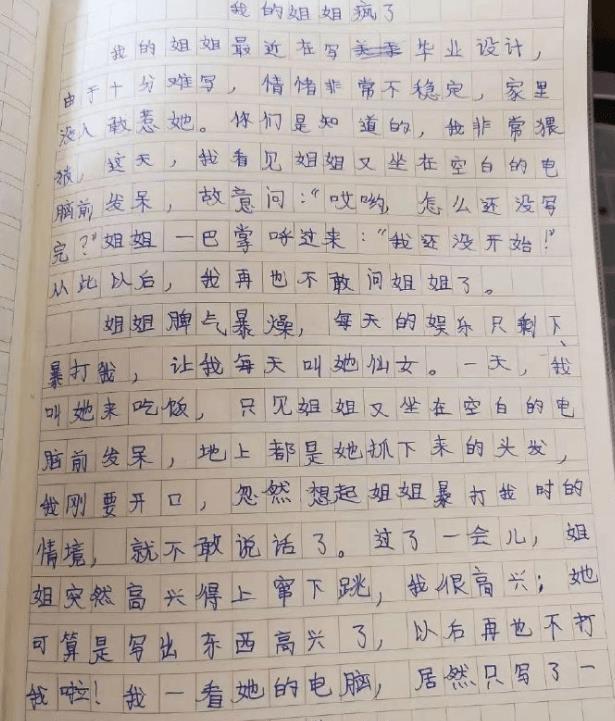 我的姐姐疯了
我的姐姐最近在写毕业设计，
由于十分难写，情绪非常不稳定，家里
没人敢惹她。你们是知道的，我非常猥
琐，这天，我看见姐姐又坐在空白的电
脑前发呆，故意问：“哎哟，怎么还没写
完？”姐姐一巴掌呼过来：“我还没开始！”
从此以后，我再也不敢问姐姐了。
姐姐脾气暴燥，每天的娱乐只剩下
暴打我，让我每天叫她仙女。一天，我
叫她来吃饭，只见姐姐又坐在空白的电
脑前发呆，地上都是她抓下来的头发，
我刚要开口，忽然想起姐姐暴打我时的
情境，就不敢说话了。过了一会儿，姐
姐突然高兴得上窜下跳，我很高兴；她
可算是写出东西高兴了，以后再也不打
我啦！我一看她的电脑，居然只写了一